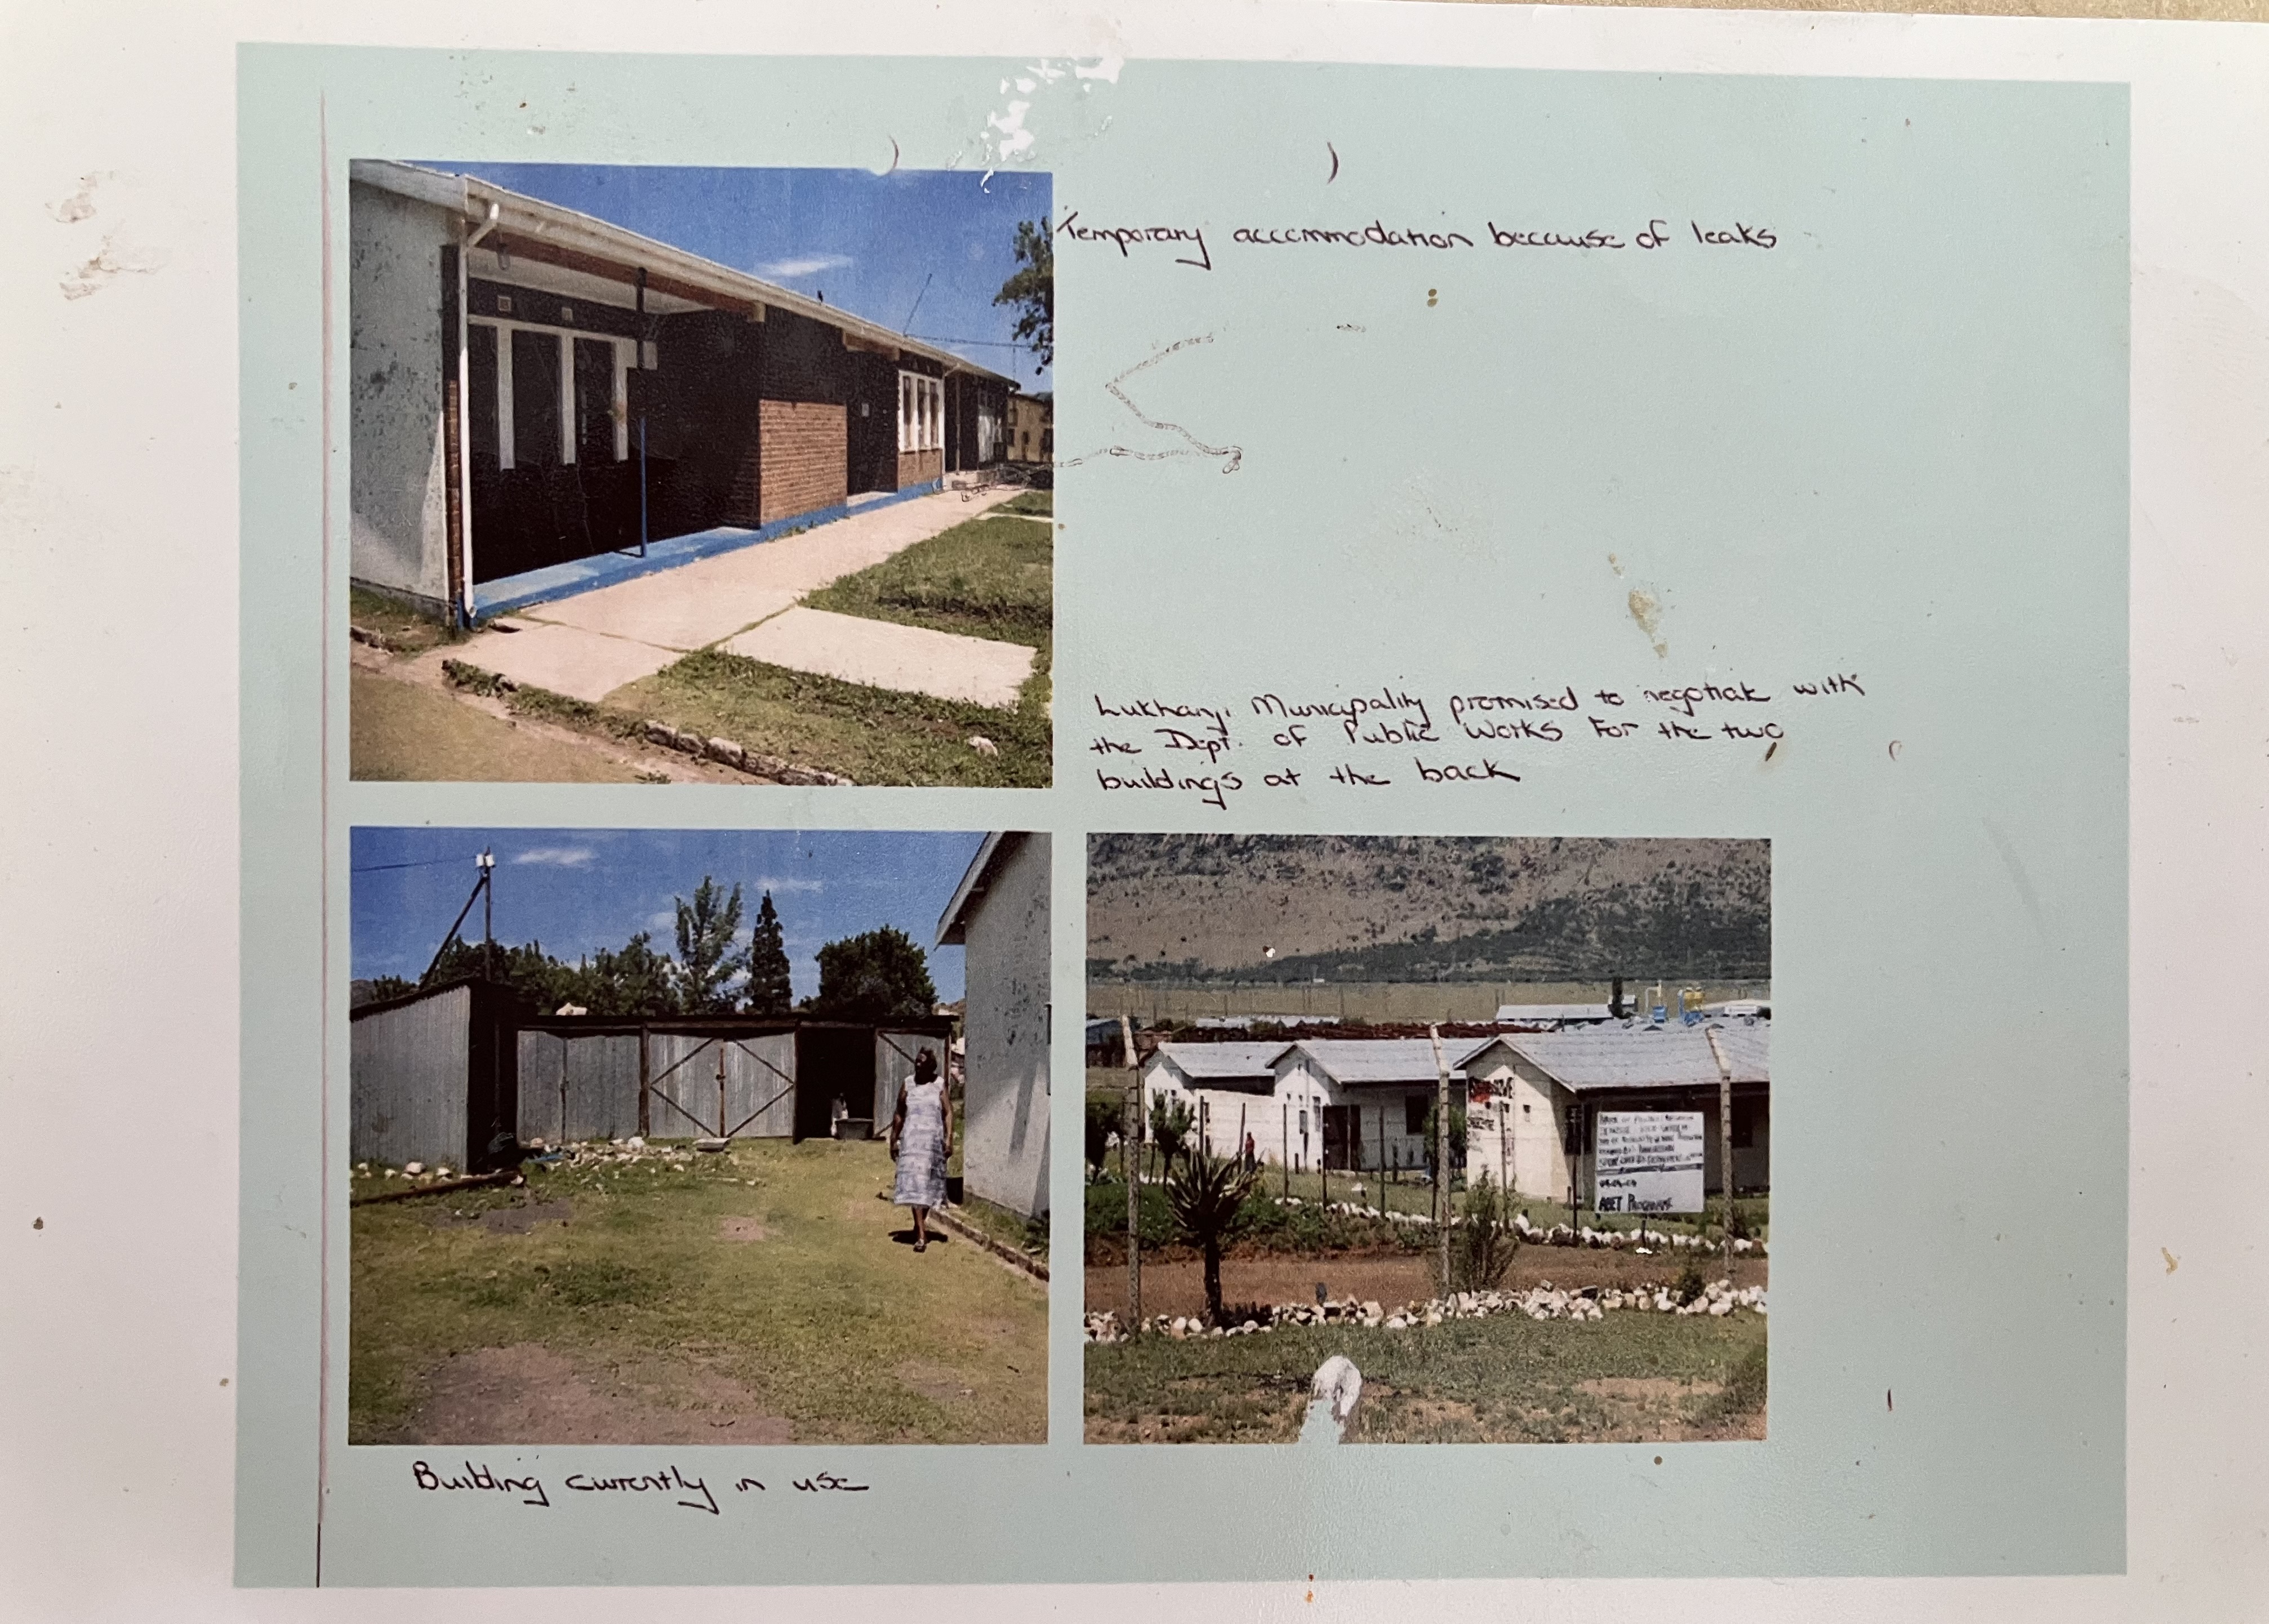 Temporary accommodation because of leaks
Lukhanji Municipality promised to negotiate with
the Dept. of Public Works for the two
buildings at the back
Building currently in use
ABET PROGRAMME